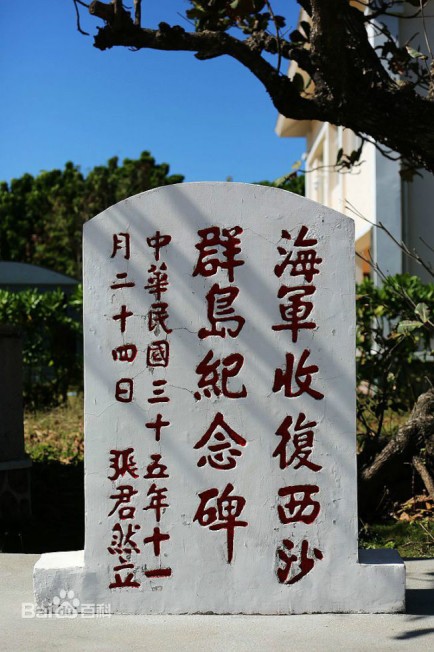 海軍收復西沙
群島紀念碑
中華民國三十五年十一
月二十四日 張君然立
Baidu百科